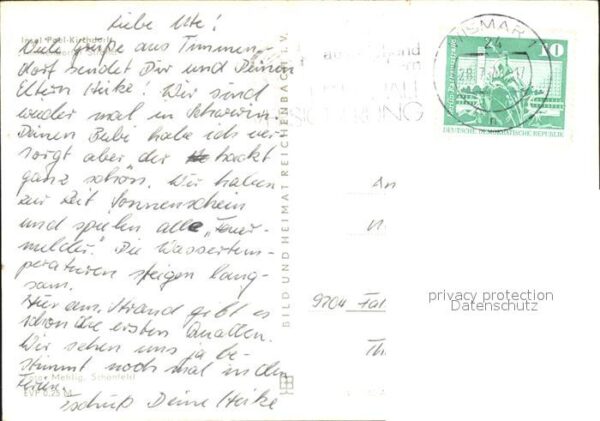 Liebe Ute!
Insel Poel-Kirchdorf
Viele Grüße aus Timmen-
dorf sendet Dir und Deinen
Eltern Heike! Wir sind
wieder mal in Schwerin.
Deinen Bubi habe ich ver-
sorgt aber der hackt
ganz schön. Wir haben
zur Zeit Sonnenschein
und spielen alle „Feuer-
melder." Die Wassertem-
peraturen steigen lang-
sam.
Hier am Strand gibt es
schon die ersten Quallen.
Wir sehen uns ja be-
stimmt noch mal in den
Ferien.
Tschüß Deine Heike
Foto: Mehlig, Schönfeld
EVP 0,25 M
BILD UND HEIMAT REICHENBACH I. V.
WISMAR 1
24
10
DEUTSCHE DEMOKRATISCHE REPUBLIK
An
9704 Fal
Th
privacy protection
Datenschutz